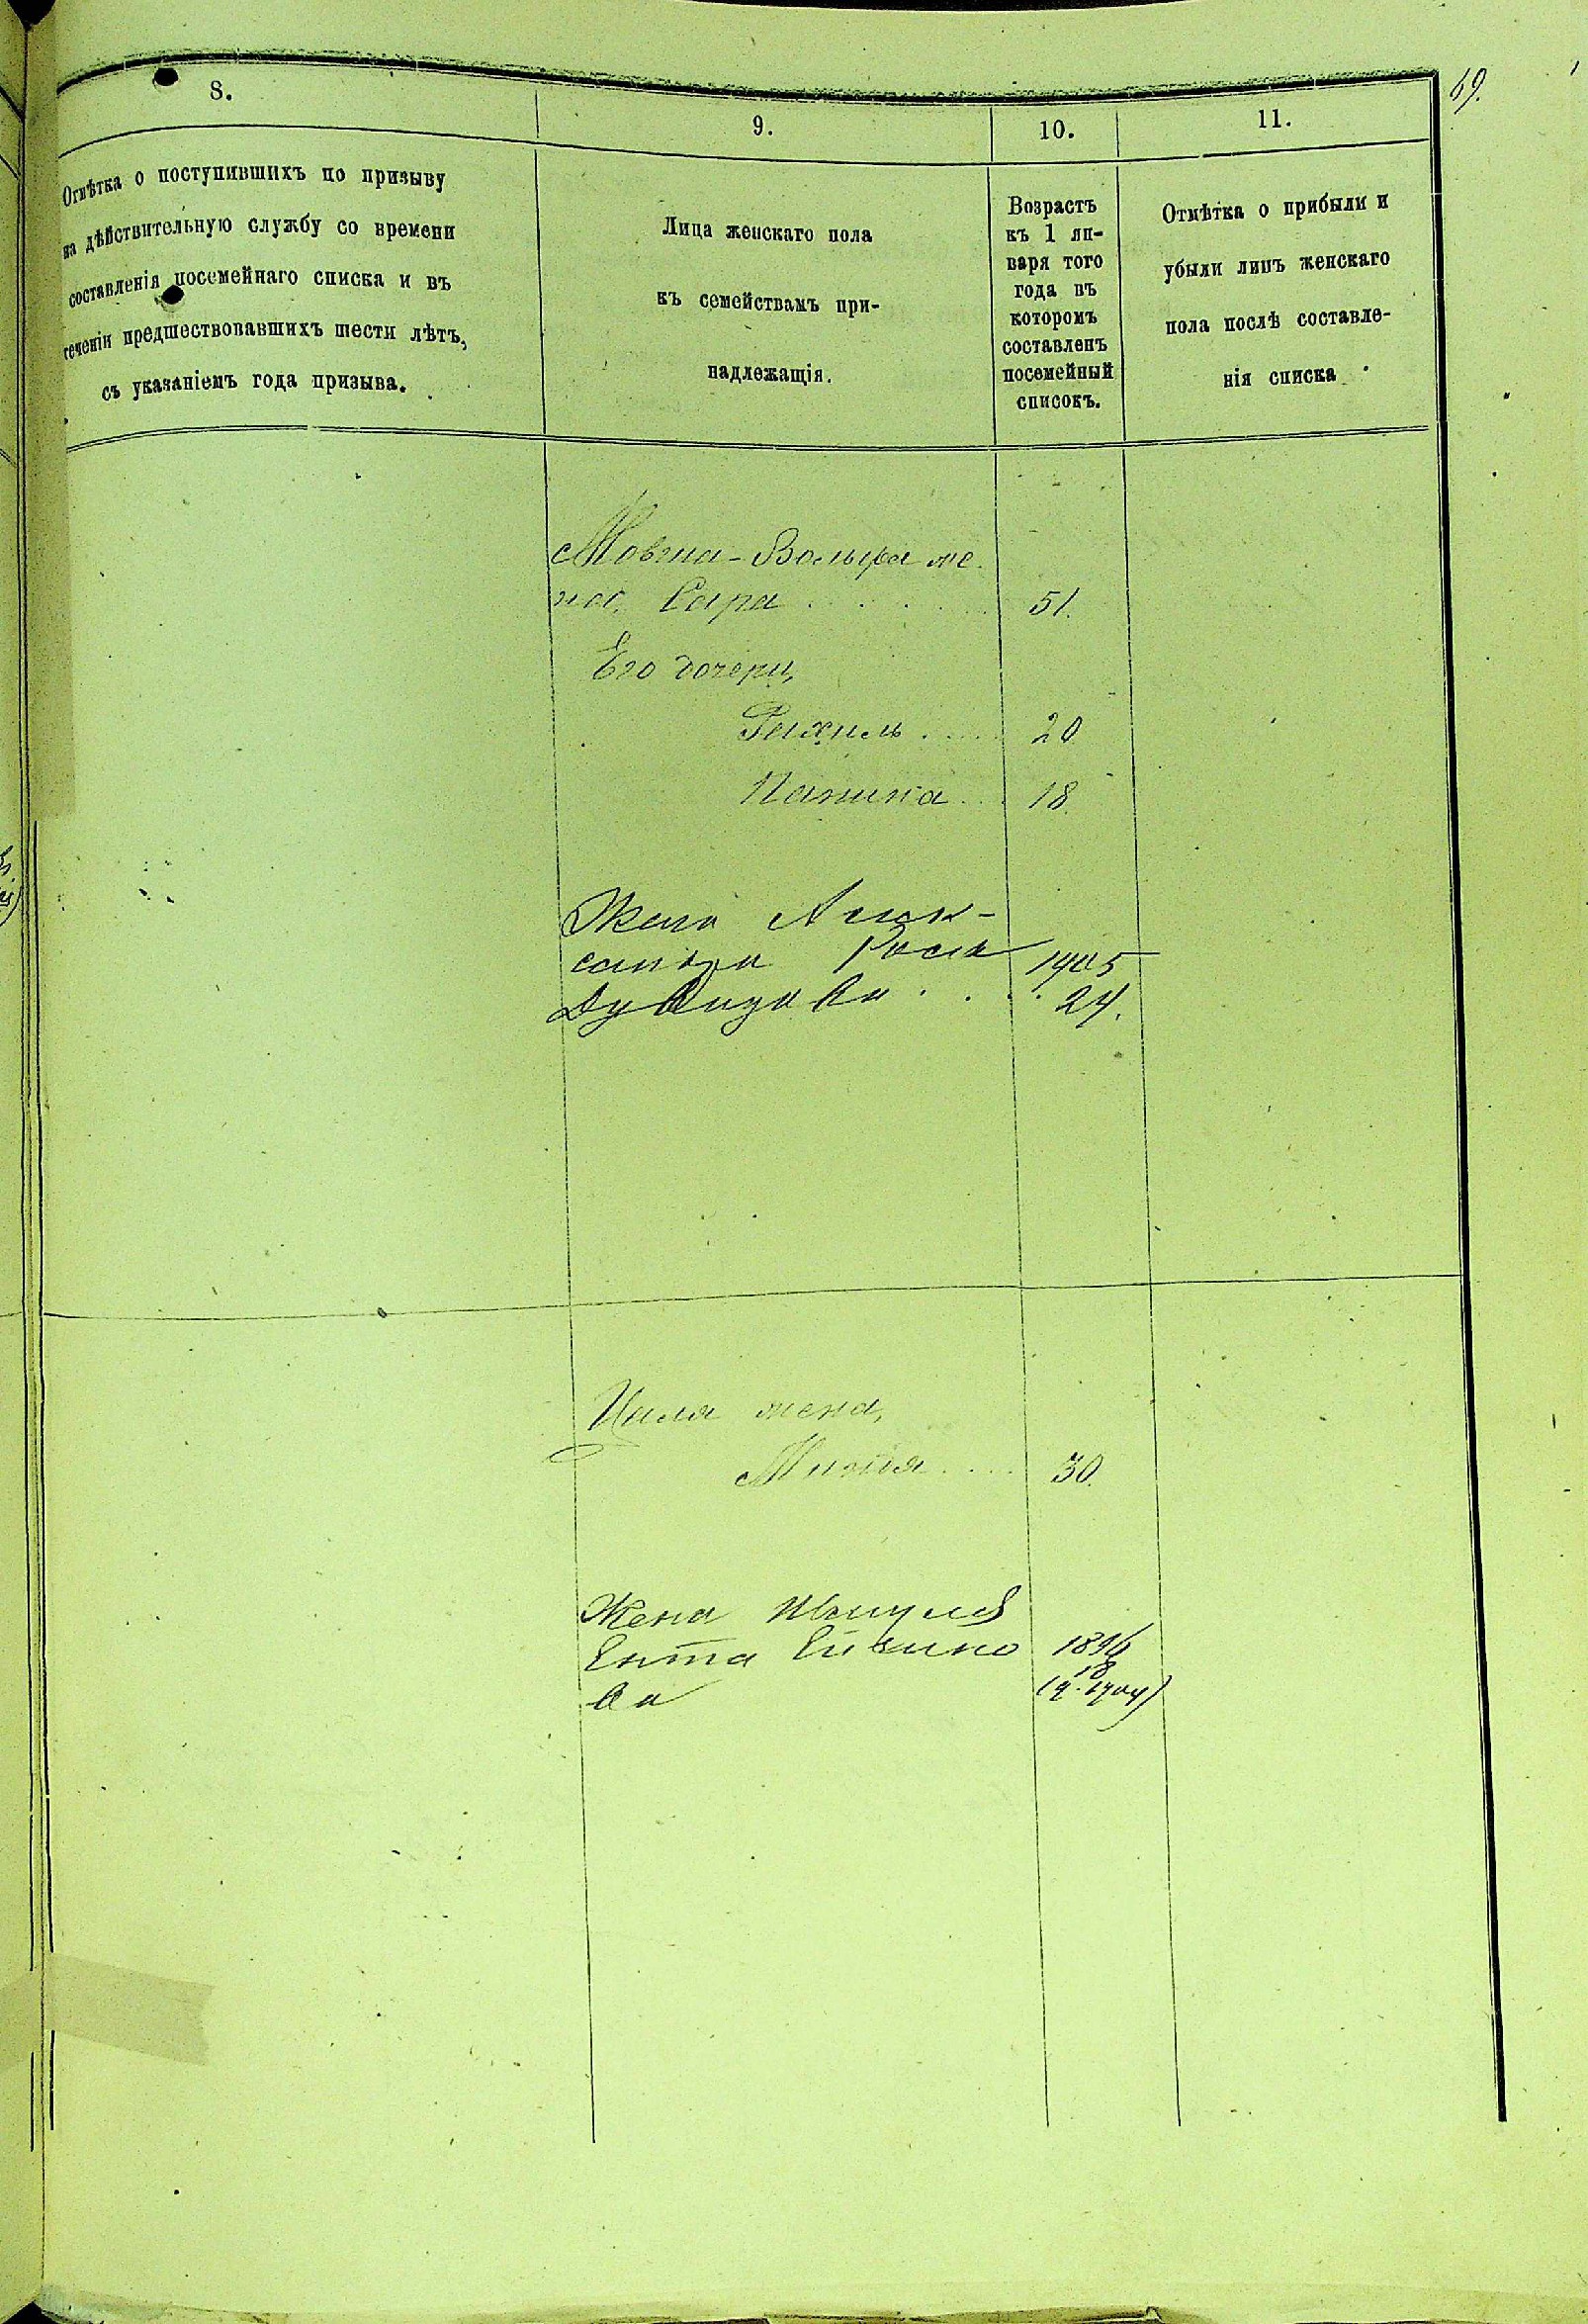 69.
8.
9.
10.
11.
Отмѣтка о поступившихъ по призыву
на дѣйствительную службу со времени
составленія посемейнаго списка и въ
теченіи предшествовавшихъ шести лѣтъ,
съ указаніемъ года призыва.
Лица женскаго пола
къ семействамъ при-
надлежащія.
Возрастъ
къ 1 ян-
варя того
года въ
которомъ
составленъ
посемейный
списокъ.
Отмѣтка о прибыли и
убыли лицъ женскаго
пола послѣ составле-
нія списка
Мовша-Вольфа же-
на, Сара 51.
Его дочери,
Рахиль 20
18.
Жена Алек-
сандра Роса 1905
24.
жена,
30.
Жена
Ента 1896
18
(ч. 1904)
ва